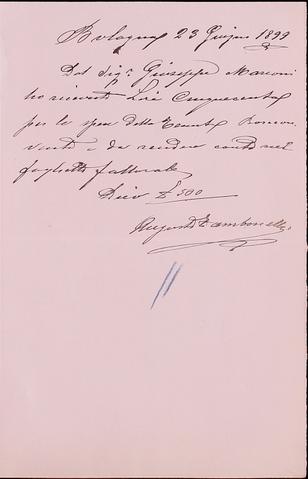 Bologna 23 Giugno 1899
Dal Sig.r Giuseppe Marconi
ho ricevuto Lire Cinquecento
per le spese della Tenuta
venti e da rendere conto nel
foglietto fattorale
Dico £ 500
Augusto Zambonelli